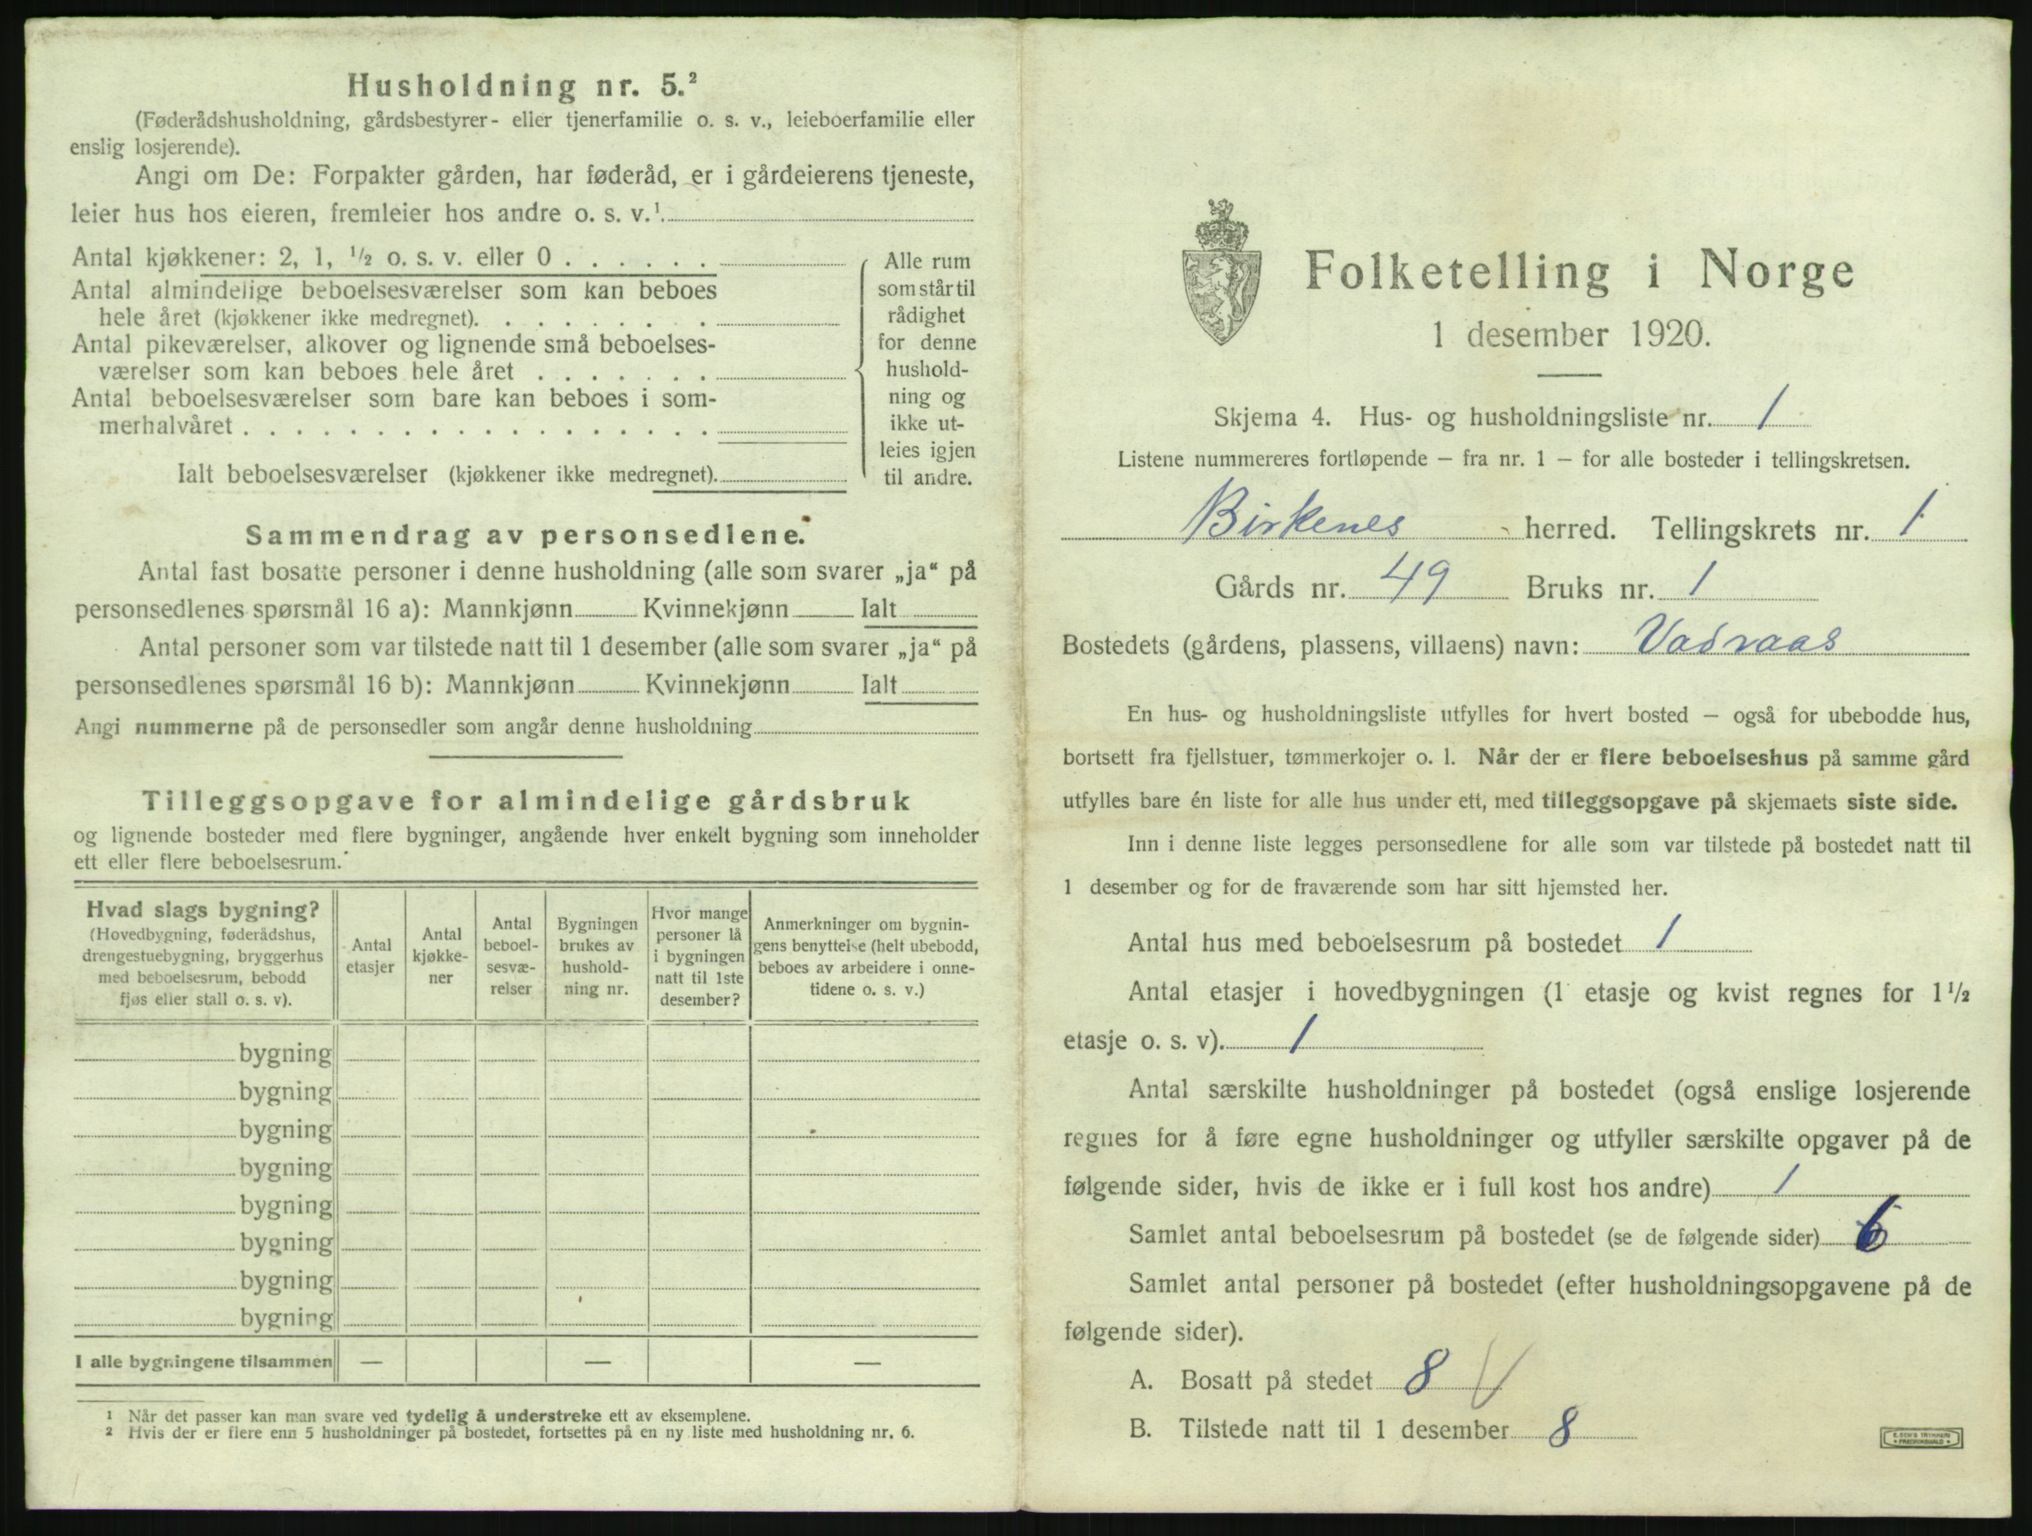 Husholdning nr. 5.²
(Føderådshusholdning, gårdsbestyrer- eller tjenerfamilie o. s. v., leieboerfamilie eller
enslig losjerende).
Angi om De: Forpakter gården, har føderåd, er i gårdeierens tjeneste,
leier hus hos eieren, fremleier hos andre o. s. v.¹
Antal kjøkkener: 2, 1, ½ o. s. v. eller 0 . . . . . .
Antal almindelige beboelsesværelser som kan beboes
hele året (kjøkkener ikke medregnet). . . . . . . .
Antal pikeværelser, alkover og lignende små beboelses-
værelser som kan beboes hele året . . . . . . .
Antal beboelsesværelser som bare kan beboes i som-
merhalvåret . . . . . . . . . . . . . . . . . .
Ialt beboelsesværelser (kjøkkener ikke medregnet).
Alle rum
som står til
rådighet
for denne
hushold-
ning og
ikke ut-
leies igjen
til andre.
Sammendrag av personsedlene.
Antal fast bosatte personer i denne husholdning (alle som svarer „ja“ på
personsedlenes spørsmål 16 a): Mannkjønn Kvinnekjønn Ialt
Antal personer som var tilstede natt til 1 desember (alle som svarer „ja“ på
personsedlenes spørsmål 16 b): Mannkjønn Kvinnekjønn Ialt
Angi nummerne på de personsedler som angår denne husholdning
Tilleggsopgave for almindelige gårdsbruk
og lignende bosteder med flere bygninger, angående hver enkelt bygning som inneholder
ett eller flere beboelsesrum.
Hvad slags bygning?
(Hovedbygning, føderådshus,
drengestuebygning, bryggerhus
med beboelsesrum, bebodd
fjøs eller stall o. s. v).
Antal
etasjer
Antal
kjøkke-
ner
Antal
beboel-
sesvæ-
relser
Bygningen
brukes av
hushold-
ning nr.
Hvor mange
personer lå
i bygningen
natt til 1ste
desember?
Anmerkninger om bygnin-
gens benyttelse (helt ubebodd,
beboes av arbeidere i onne-
tidene o. s. v.)
bygning
bygning
bygning
bygning
bygning
bygning
bygning
bygning
I alle bygningene tilsammen — — —
¹ Når det passer kan man svare ved tydelig å understreke ett av eksemplene.
² Hvis der er flere enn 5 husholdninger på bostedet, fortsettes på en ny liste med husholdning nr. 6.
Folketelling i Norge
1 desember 1920.
Skjema 4. Hus- og husholdningsliste nr. 1
Listene nummereres fortløpende — fra nr. 1 — for alle bosteder i tellingskretsen.
Birkenes herred. Tellingskrets nr. 1
Gårds nr. 49 Bruks nr. 1
Bostedets (gårdens, plassens, villaens) navn: Vadraas
En hus- og husholdningsliste utfylles for hvert bosted — også for ubebodde hus,
bortsett fra fjellstuer, tømmerkojer o. l. Når der er flere beboelseshus på samme gård
utfylles bare én liste for alle hus under ett, med tilleggsopgave på skjemaets siste side.
Inn i denne liste legges personsedlene for alle som var tilstede på bostedet natt til
1 desember og for de fraværende som har sitt hjemsted her.
Antal hus med beboelsesrum på bostedet 1
Antal etasjer i hovedbygningen (1 etasje og kvist regnes for 1½
etasje o. s. v). 1
Antal særskilte husholdninger på bostedet (også enslige losjerende
regnes for å føre egne husholdninger og utfyller særskilte opgaver på de
følgende sider, hvis de ikke er i full kost hos andre) 1
Samlet antal beboelsesrum på bostedet (se de følgende sider) 6
Samlet antal personer på bostedet (efter husholdningsopgavene på de
følgende sider).
A. Bosatt på stedet 8 V
B. Tilstede natt til 1 desember 8